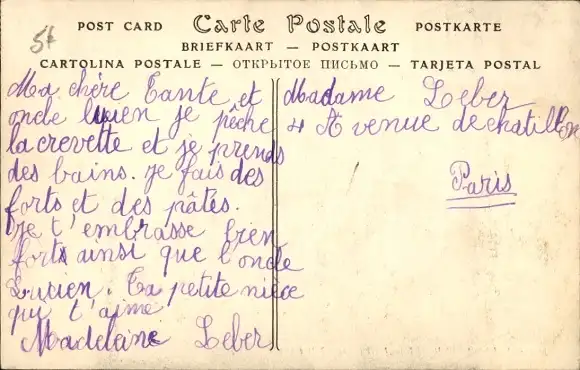 POST CARD Carte Postale POSTKARTE
BRIEFKAART — POSTKAART
CARTOLINA POSTALE — ОТКРЫТОЕ ПИСЬМО — TARJETA POSTAL
Ma chère Tante et
oncle Lucien je pêche
la crevette et je prends
des bains. je fais des
forts et des pâtés.
je t'embrasse bien
fort ainsi que l'oncle
Lucien. Ta petite nièce
qui t'aime
Madeleine Leber
Madame Leber
4 Avenue de chatillon
Paris